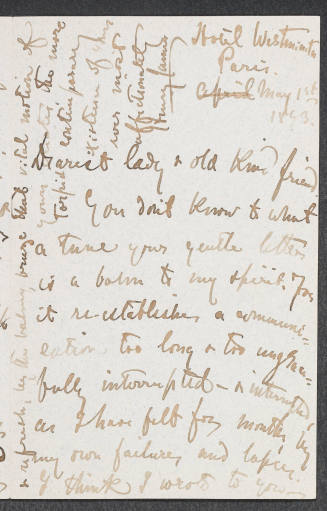 Hotel Westminster
Paris.
April May 1st
1893.
Dearest lady & old kind friend
You don't know to what
a tune your gentle letter
is a balm to my spirit. For
it re-establishes a communi-
cation too long & too ungrace-
fully interrupted — & interrupted,
as I have felt for months, by
my own failures and lapses.
I think I wrote to you
& refresh, by the balmy breeze that vital motion of
yours the more
torpid
contemporary
existence of yours
ever most
affectionately
Henry James